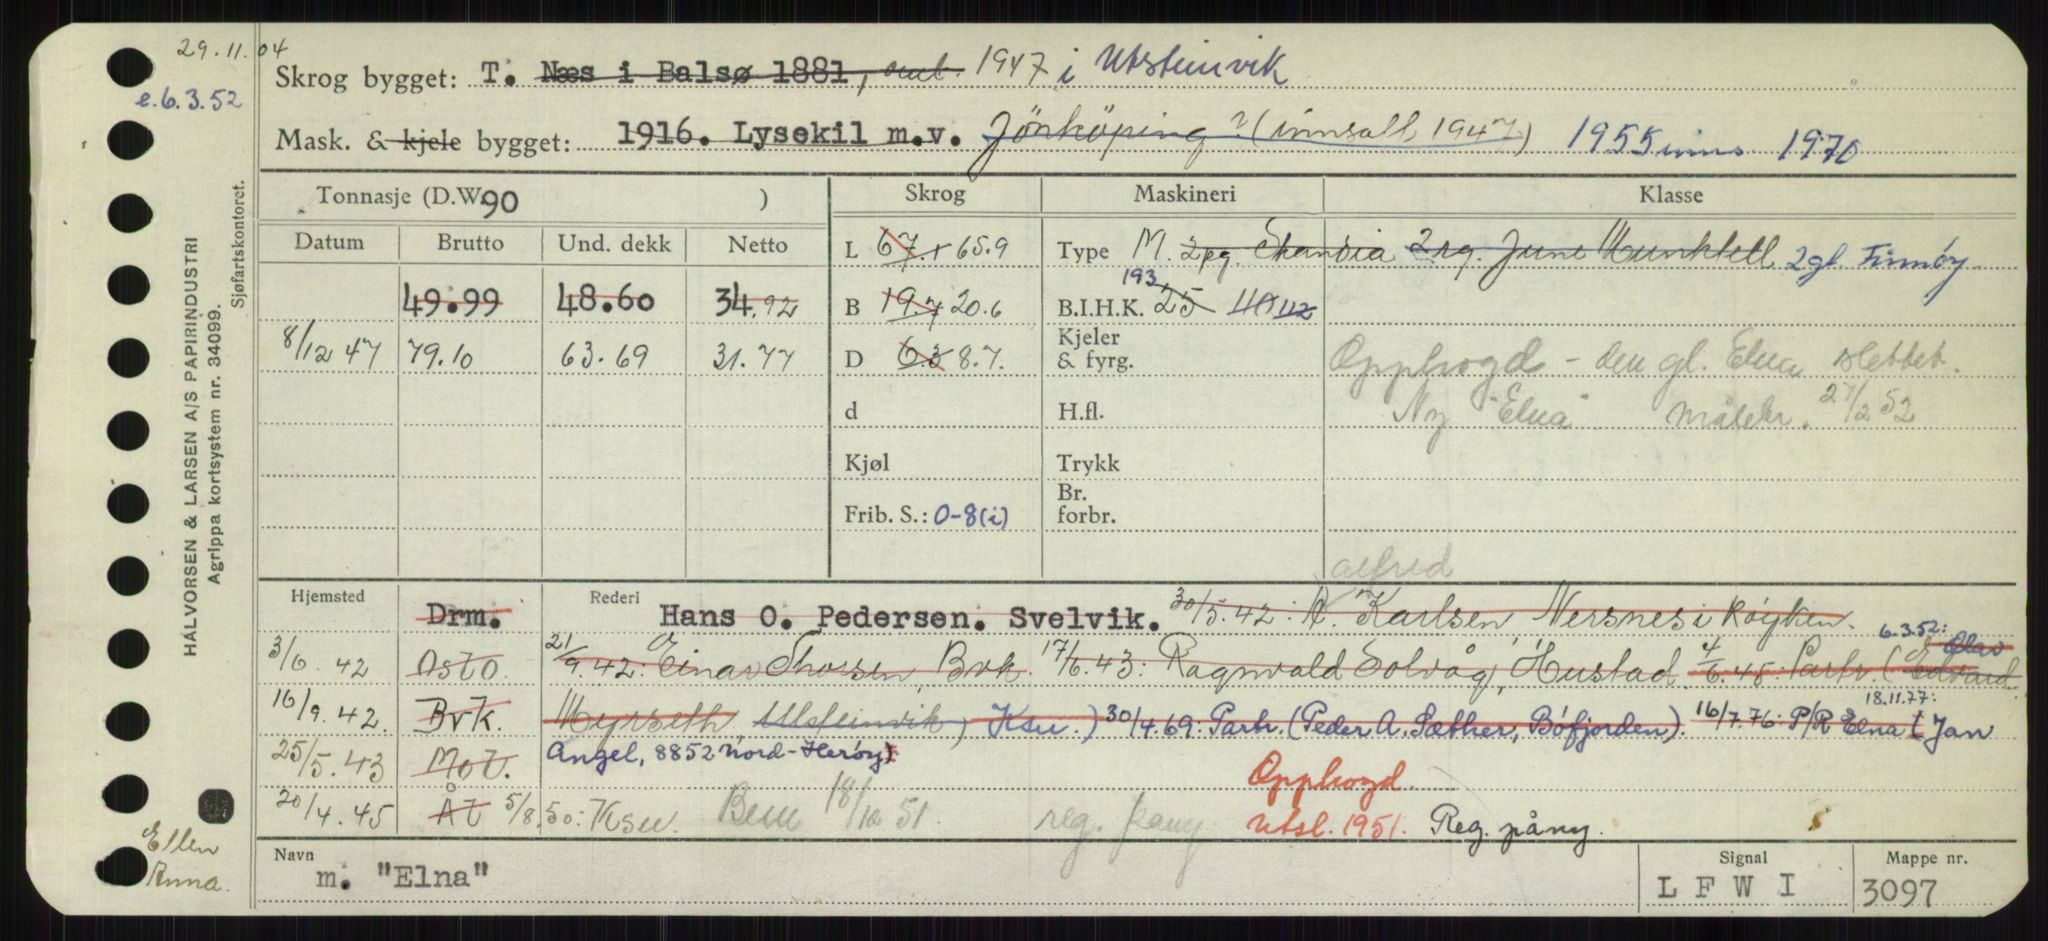 29.11.04
e.6.3.52
Skrog bygget: T. Næs i Balsø 1881, omb. 1947 i Utsteinvik
Mask. & kjele bygget: 1916. Lysekil m.v. Jönköping ? (innsatt 1947) 1955 inns 1970
Tonnasje (D.W. 90 ) Skrog Maskineri Klasse
Datum Brutto Und. dekk Netto L 67.1 65.9 Type M. 2pg. Skandia 2 sg. June Munktell 2gl. Finnøy
49.99 48.60 34.92 B 19.7 20.6 B.I.H.K. 25 40 112 193
8/12 47 79.10 63.69 31.77 D 6.3 8.7. Kjeler & fyrg. Opphogd - den gl. Elna slettet.
d H.fl. Ny "Elna" målebr. 27/2 52
Kjøl Trykk
Frib. S.: 0-8(i) Br. forbr.
Alfred
Hjemsted Drm. Rederi Hans O. Pedersen. Svelvik. 30/5.42: A. Karlsen Nersnes i Røyken.
6.3.52: Olav
3/6.42 Oslo 21/9.42: Einar Thorsen, Bvk. 17/6.43: Ragnvald Solvåg, Hustad. 4/6.45: Partr. (Edvard
18.11.77:
16/9.42. Bvk. Myrseth, Ulsteinvik, Ksu.) 30/4.69: Partr. (Peder A. Sæther, Bøfjorden). 16/7.76: P/R Elna (Jan
25/5.43 Mol. Angel, 8852 Nord-Herøy)
Opphogd.
20/4.45 Ål 5/8.50: Ksu. Bem 18/10 51. reg. påny Utsl. 1951. Reg. påny.
Ellen
Anna.
Navn m. "Elna" Signal LFWI Mappe nr. 3097
HALVORSEN & LARSEN A/S PAPIRINDUSTRI
Agrippa kortsystem nr. 34099.
Sjøfartskontoret.